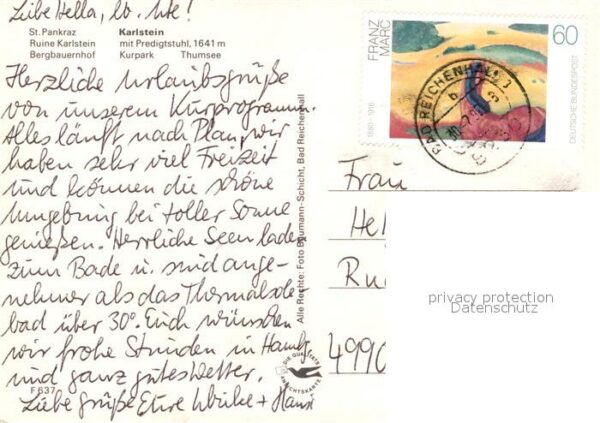 Liebe Hella, lb. Ute!
St. Pankraz
Ruine Karlstein
Bergbauernhof
Karlstein
mit Predigtstuhl, 1641 m
Kurpark Thumsee
Herzliche Urlaubsgrüße
von unserem Kurprogramm.
Alles läuft nach Plan, wir
haben sehr viel Freizeit
und können die schöne
Umgebung bei toller Sonne
genießen. Herrliche Seen laden
zum Bade u. sind ange-
nehmer als das Thermalsole-
bad über 30°. Euch wünschen
wir frohe Stunden in Hambg
und ganz gutes Wetter.
Liebe Grüße Eure Ulrike + Hans
F 637
Alle Rechte: Foto Baumann-Schicht, Bad Reichenhall
DIE QUALITÄTS
ANSICHTSKARTE
FRANZ
MARC
1880-1916
60
DEUTSCHE BUNDESPOST
BAD REICHENHALL 3
Frau
Hel
Ru
4990
privacy protection
Datenschutz